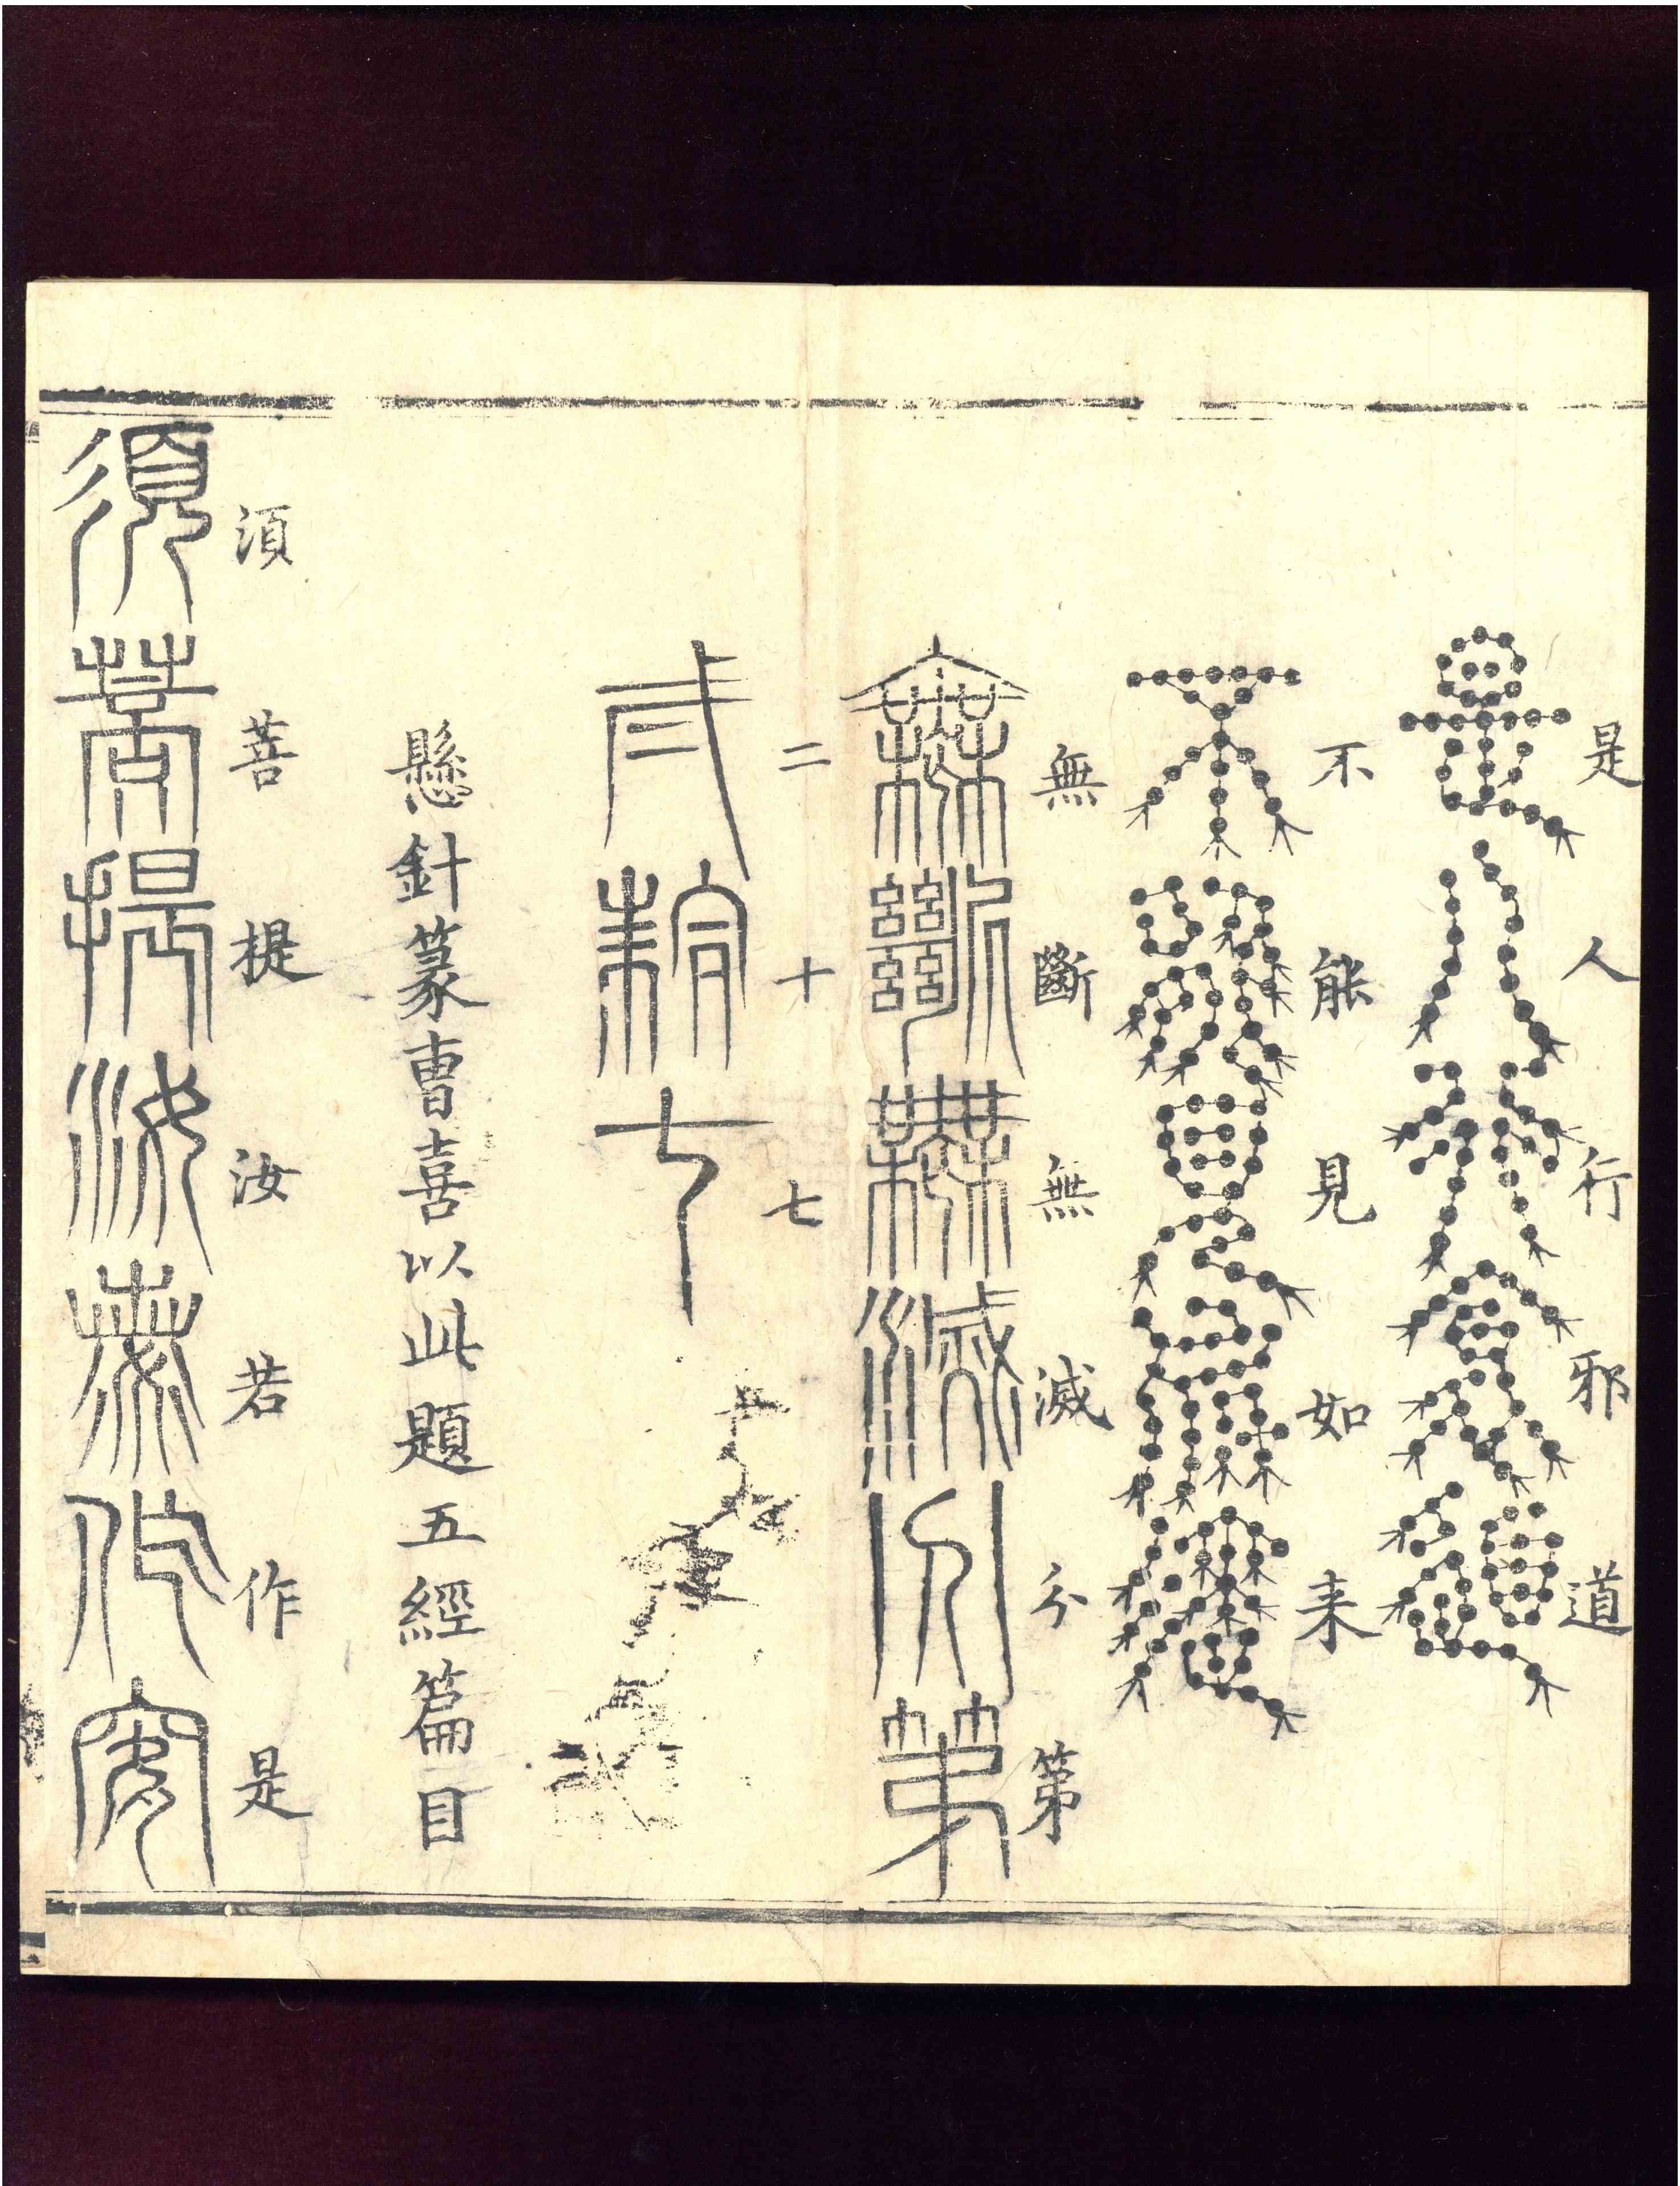 是人行邪道
不能見如来
無斷無滅分第
二十七
懸針篆曹喜以此題五經篇目
湏菩提汝若作是